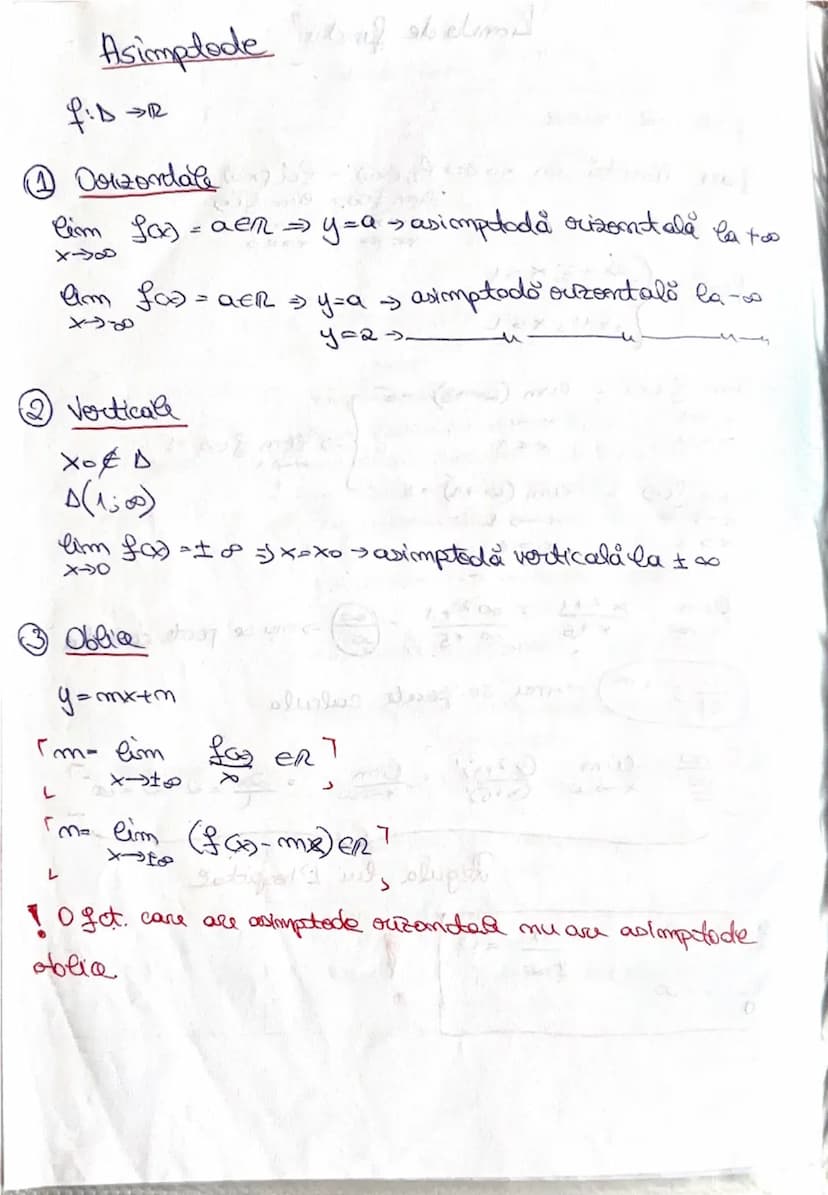 Asimptode
f:D→ℝ
① Orizontale
lim f(x) = a∈ℝ ⇒ y=a → asimptodă orizontală la +∞
x→∞
lim f(x) = a∈ℝ ⇒ y=a → asimptodă orizontală la -∞
x→-∞
y=2 → —— u —— u —— u —
② Verticale
x₀∉D
D(1;∞)
lim f(x) = ±∞ ⇒ x=x₀ → asimptodă verticală la ±∞
x→0
③ Oblice
y=mx+n
m= lim f(x)/x ∈ℝ
x→±∞
n= lim (f(x)-mx)∈ℝ
x→±∞
! O fct. care are asimptode orizontale nu are asimptode
oblice